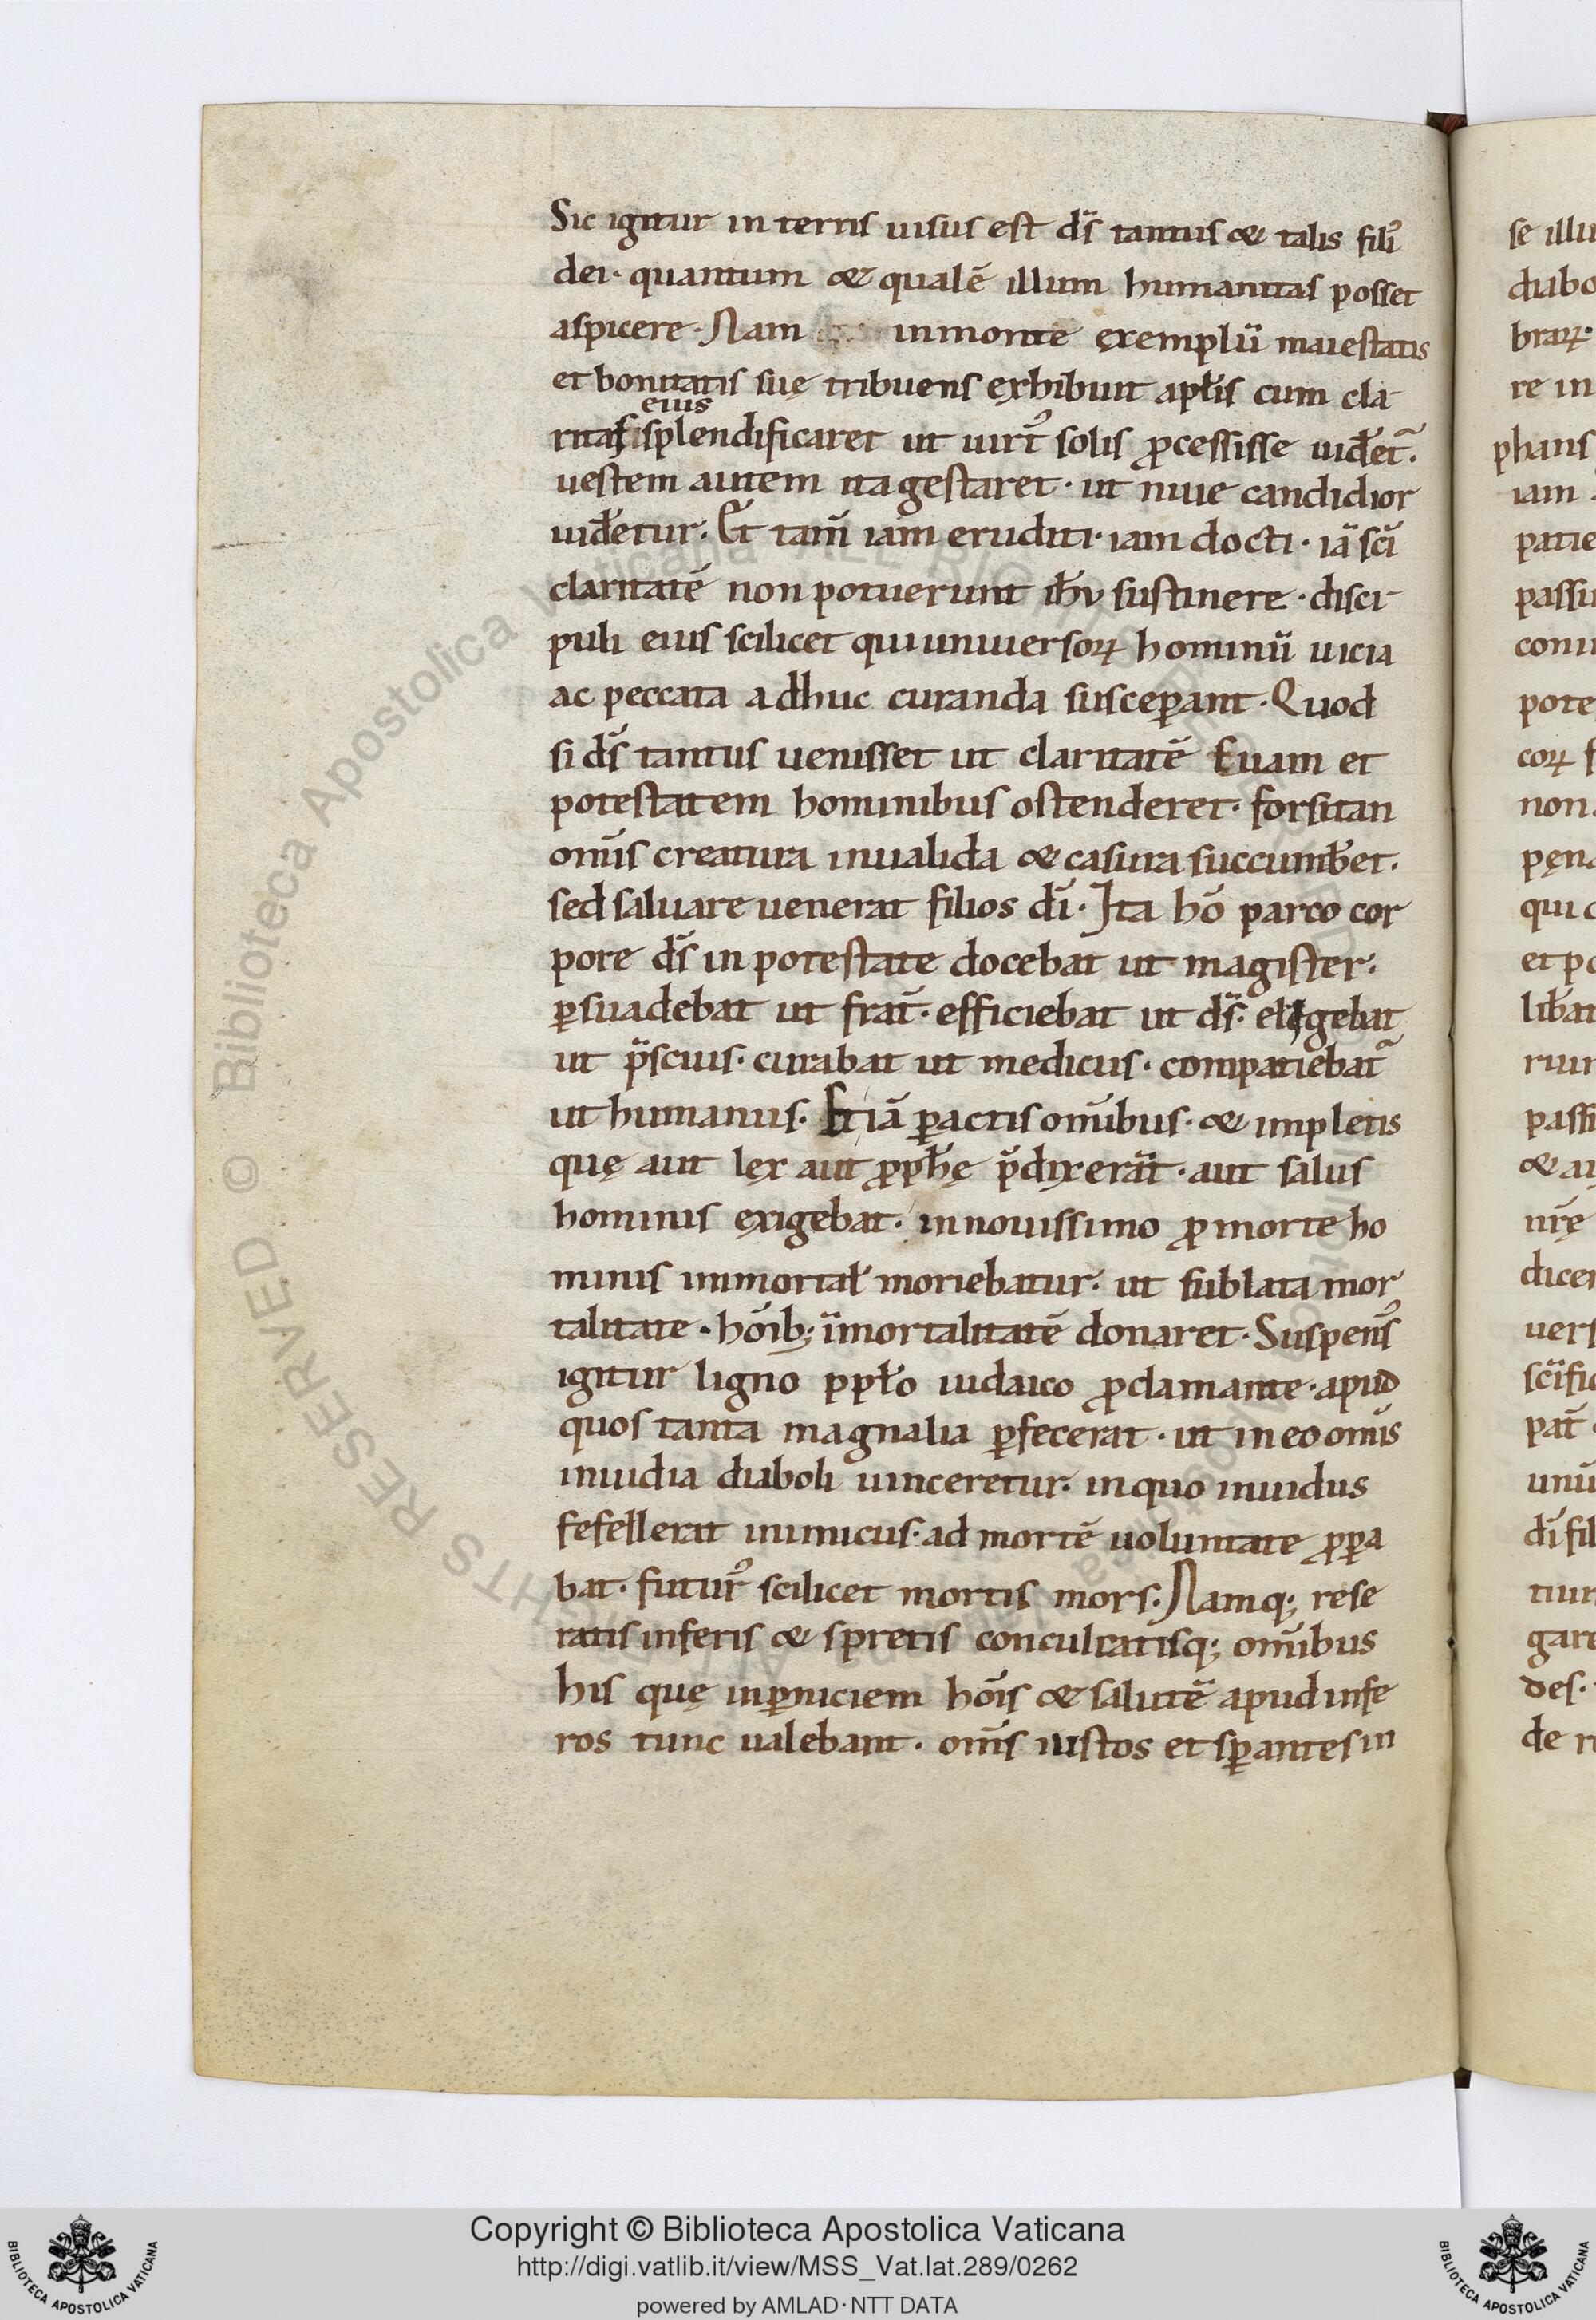 Sic igitur in terris uisus est d̅s tantus & talis fili᷒
dei· quantum & qualē illum humanitas posset
aspicere· Nam inmonte exemplū maiestatis
et bonitatis suę tribuens exhibuit apłis cum cla
eius
ritas splendificaret ut uirt᷒ solis ꝓcessisse uideret᷑.
uestem autem ita gestaret· ut niue candidior
uidetur. Et tam̅ iam eruditi· iam docti· iā sc̅i
claritatē non potuerunt ih̅u sustinere· disci
puli eius scilicet qui uniuersoꝝ hominū uicia
ac peccata adhuc curanda susceꝑant· Quod
si d̅s tantus uenisset ut claritatē suam et
potestatem hominibus ostenderet· forsitan
om̅is creatura inualida & casura succumb̅et.
sed saluare uenerat filios d̅i· Ita ho̅ parco cor
pore d̅s in potestate docebat ut magister·
ꝑsuadebat ut frat̅· efficiebat ut d̅s· eligebat
ut p̅scius· curabat ut medicus· compatiebat᷑
ut humanus. Etiā ꝑactis om̅ibus· & impletis
quę aut lex aut ꝓph̅ę p̅dixerāt· aut salus
hominis exigebat· in nouissimo ꝓ morte ho
minis immortał moriebatur· ut sublata mor
talitate· ho̅ib; i̅mortalitatē donaret· Suspens᷒
igitur ligno ppło iudaico ꝓclamante· apud
quos tanta magnalia ꝑfecerat· ut in eo om̅is
inuidia diaboli uinceretur· in quo inuidus
fefellerat inimicus· ad mortē uoluntate ꝓꝑa
bat· futur᷒ scilicet mortis mors. Namq; rese
ratis inferis & spretis conculcatisq; om̅ibus
his quę inꝑniciem ho̅is & salutē apud infe
ros tunc ualebant· om̅s iustos et sꝑantes in
se illu
diabo
braꝝ·
re in
phans
iam
patie
passi
coni
pote
coꝝ
non
pęn
qui
et po
lib̅at
riur
passi
& au
nr̅ę
dicer
uers
sc̅ific
pat̅
unū
d̅i fil
tiur
gare
des·
de r
Copyright © Biblioteca Apostolica Vaticana
http://digi.vatlib.it/view/MSS_Vat.lat.289/0262
powered by AMLAD·NTT DATA
BIBLIOTECA APOSTOLICA VATICANA
BIBLIOTECA APOSTOLICA VATICANA